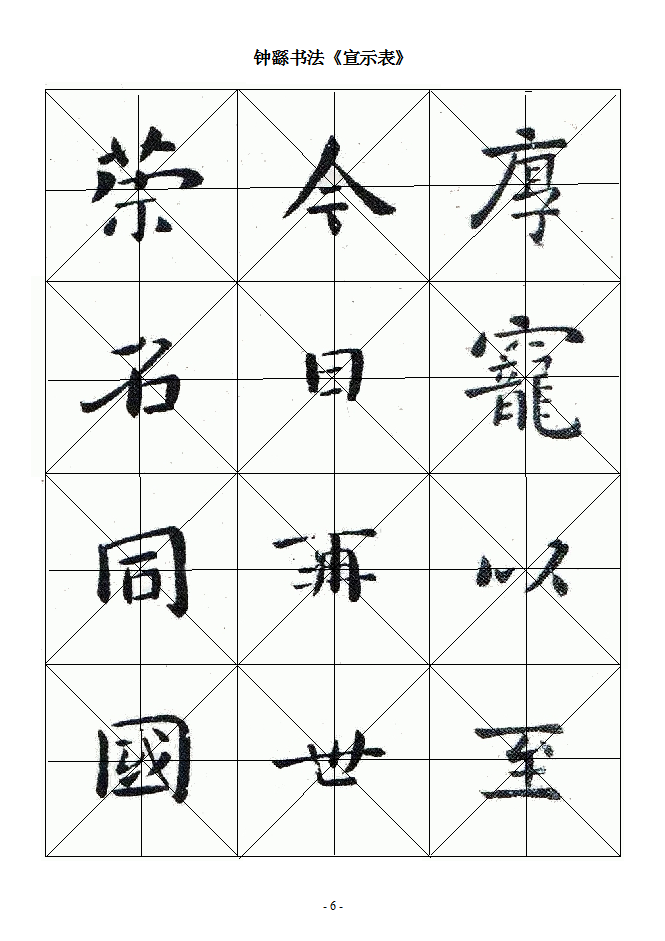 钟繇书法《宣示表》
厚寵以至
今日再世
榮名同國
- 6 -